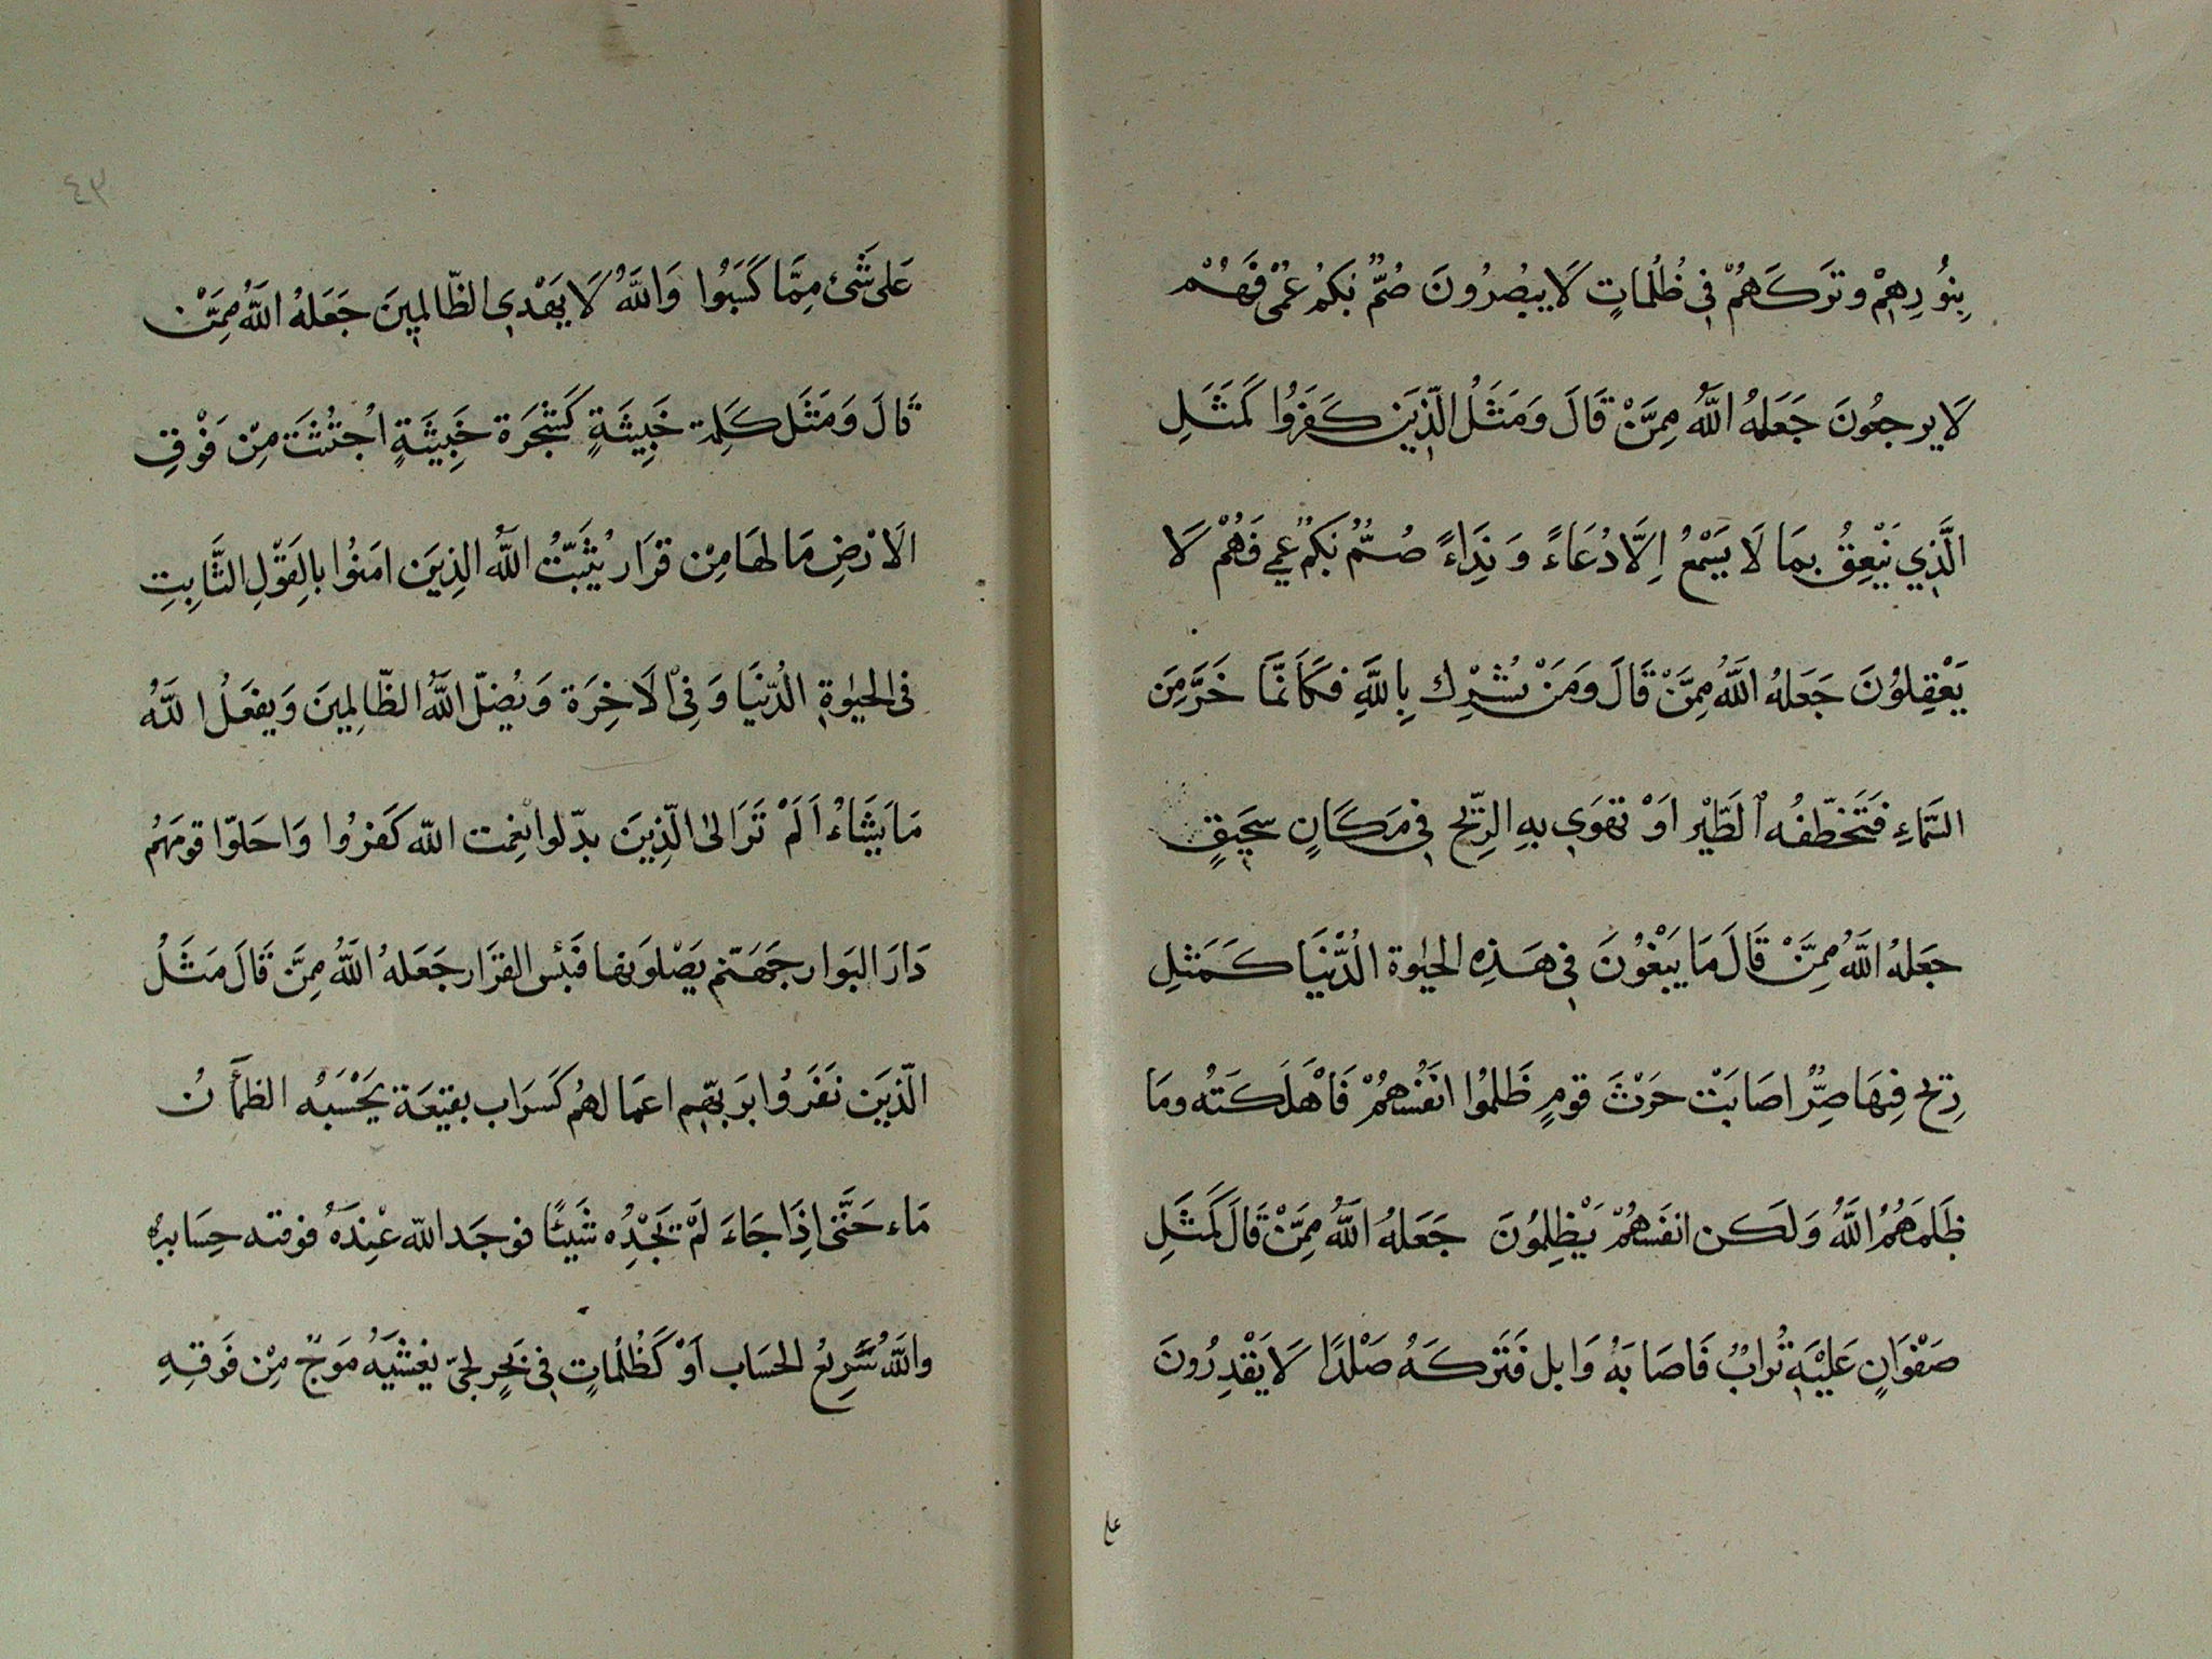 بِنُورِهِمْ وَتَرَكَهُمْ فِي ظُلُمَاتٍ لَا يُبْصِرُونَ صُمٌّ بُكْمٌ عُمْيٌ فَهُمْ
لَا يرجعُونَ جَعَلَهُ اللّٰهُ مِمَّنْ قَالَ وَمَثَلُ الَّذِينَ كَفَرُوا كَمَثَلِ
الَّذِي يَنْعِقُ بِمَا لَا يَسْمَعُ اِلَّا دُعَاءً وَنِدَاءً صُمٌّ بُكْمٌ عمي فَهُمْ لَا
يَعْقِلُونَ جَعَلَهُ اللّٰهُ مِمَّنْ قَالَ وَمَنْ يُشْرِك بِاللّٰهِ فكَاَنَّمَا خَرَّ مِنَ
السَّمَاءِ فَتَخَطَّفُه الطَّيْر اَوْ تَهْوَي بِهِ الرِّيْحُ فِي مَكَانٍ سَحِيقٍ
جعَلهُ اللّٰهُ مِمَّنْ قَالَ مَا يَبْغُونَ فِي هَذِهِ الحيٰوة الدُّنْيَا كَمَثلِ
رِيْحٍ فِيهَا صِرٌّ اصَابَتْ حَرْثَ قومٍ ظَلمُوا انَفُسْهُمْ فَاَهْلَكَتْه ومَا
ظَلَمَهُمُ اللّٰهُ وَلَكن انفَسهُمْ يَظِلِمُونَ جَعَلهُ اللّٰهُ مِمَّنْ قَالَ كَمَثَلِ
صَفْوَانٍ عَلَيْهِ تُرابٌ فَاصَابَهُ وَابل فَتَركَهُ صَلْدًا لَا يَقْدِرُونَ
على
٩٤
عَلى شَئ مِمَّا كَسَبُوا وَاللّٰهُ لَا يَهْدِي الظّالِمِينَ جَعَلهُ اللّٰهُ مِمَّنْ
قَالَ وَمَثَل كَلِمَة خَبِيثَةٍ كَشَجَرَة خَبِيثَةٍ اجْتُثَّتَ مِنْ فَوْقِ
الَارْضِ مَا لهَا مِنْ قَرَار يُثَبِّتُ اللّٰهُ الذِينَ امَنُوا بالقَوْلِ الثَّابِتِ
فى الحيٰوةِ الدُّنيَا وَفِي الَاخِرَة وَيُضِلّ اللّٰهُ الظّالِمِينَ وَيفعَلُ اللّٰهُ
مَا يَشَاءُ اَلَمْ تَرَ الىٰ الَّذِينَ بدّلوا نِعمت اللّٰه كَفرُوا وَاحَلوّا قومَهُم
دَارَ البَوار جَهَنّم يَصْلوَنها فَبئس القرَار جَعَلهُ اللّٰهُ مِمَّن قَالَ مَثَلُ
الّذيَن نَفَروُا برَبهِّم اعمَالهُم كَسَرَاب بقيَعَة يَحْسَبُه الظمَأٓنُ
مَاء حَتَّى اِذَا جَاءَ لَمْ يَجْدُه شَيئًا فوجَد اللّٰه عْنِدَهُ فوفته حِسَابهُ
واللّٰهُ سَرِيعُ الحسَاب اَوْ كَظُلُمَاتٍ فِي بَحْرٍ لجيّ يغشيَهُ مَوْجٌ مِنْ فَوقِهِ